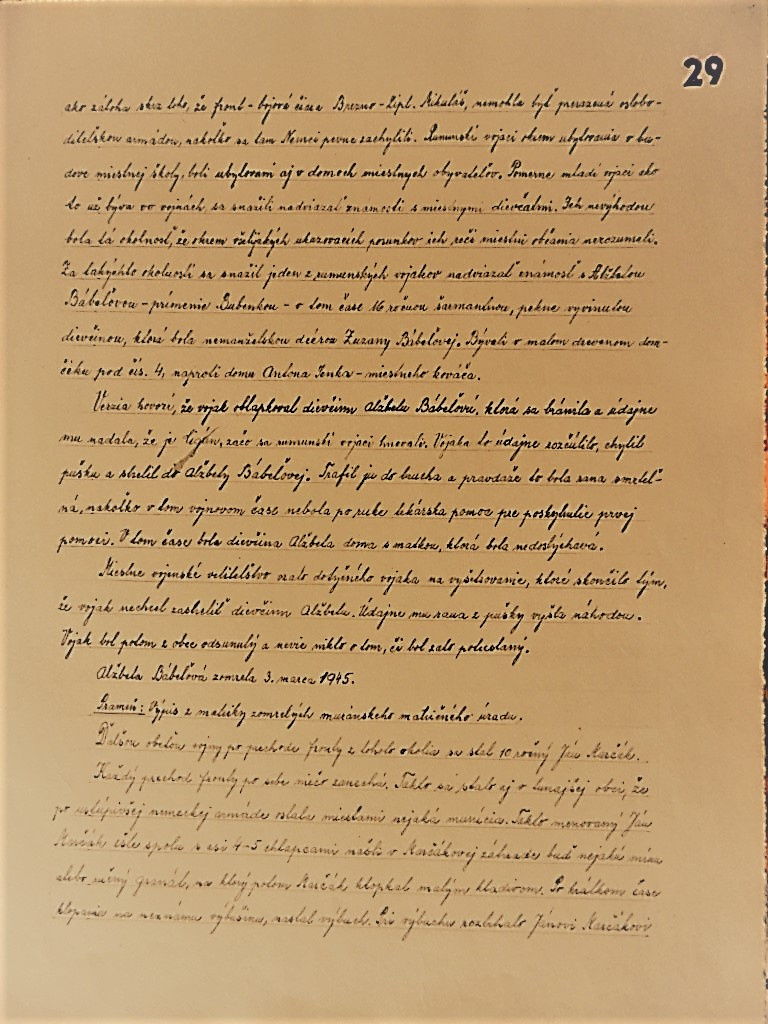 29
ako záloha skrz toho, že front - bojová čiara Brezno - Lipt. Mikuláš, nemohla byť prerazená oslobo-
diteľskou armádou, nakoľko sa tam Nemci pevne zachytili. Rumunskí vojaci okrem ubytovania v bu-
dove miestnej školy, boli ubytovaní aj v domoch miestnych obyvateľov. Pomerne mladí vojaci ako
to už býva vo vojnách, sa snažili nadviazať známosti s miestnymi dievčatmi. Ich nevýhodou
bola tá okolnosť, že okrem všelijakých ukazovacích posunkov ich reči miestni občania nerozumeli.
Za takýchto okolností sa snažil jeden z rumunských vojakov nadviazať známosť s Alžbetou
Bábeľovou - prímenie Gubenkou - v tom čase 16 ročnou šarmantnou, pekne vyvinutou
dievčinou, ktorá bola nemanželskou dcérou Zuzany Bábeľovej. Bývali v malom drevenom dom-
čeku pod čís. 4, naproti domu Antona Tenka - miestneho kováča.
Verzia hovorí, že vojak oblapkoval dievčinu Alžbetu Bábeľovú, ktorá sa bránila a údajne
mu nadala, že je Cigán, začo sa rumunskí vojaci hnevali. Vojaka to údajne rozčúlilo, chytil
pušku a strelil do Alžbety Bábeľovej. Trafil ju do brucha a pravdaže to bola rana smrteľ-
ná, nakoľko v tom vojnovom čase nebola po ruke lekárska pomoc pre poskytnutie prvej
pomoci. V tom čase bola dievčina Alžbeta doma s matkou, ktorá bola nedoslýchavá.
Miestne vojenské veliteľstvo vzalo dotyčného vojaka na vyšetrovanie, ktoré skončilo tým,
že vojak nechcel zastreliť dievčinu Alžbetu. Údajne mu rana z pušky vyšla náhodou.
Vojak bol potom z obce odsunutý a nevie nikto o tom, či bol zato potrestaný.
Alžbeta Bábeľová zomrela 3. marca 1945.
Prameň: Výpis z matriky zomrelých muránskeho matričného úradu.
Ďalšou obeťou vojny po prechode fronty z tohoto okolia sa stal 10 ročný Ján Karčák.
Každý prechod fronty po sebe niečo zanechá. Takto sa stalo aj v tunajšej obci, že
po ustúpivšej nemeckej armáde ostala miestami nejaká munícia. Takto menovaný Ján
Karčák ešte spolu s asi 4-5 chlapcami našli v Karčákovej záhrade buď nejakú mínu
alebo ručný granát, na ktorý potom Karčák klopkal malým kladivom. Po krátkom čase
klopania na neznámu výbušninu, nastal výbuch. Pri výbuchu roztrhalo Jánovi Karčákovi